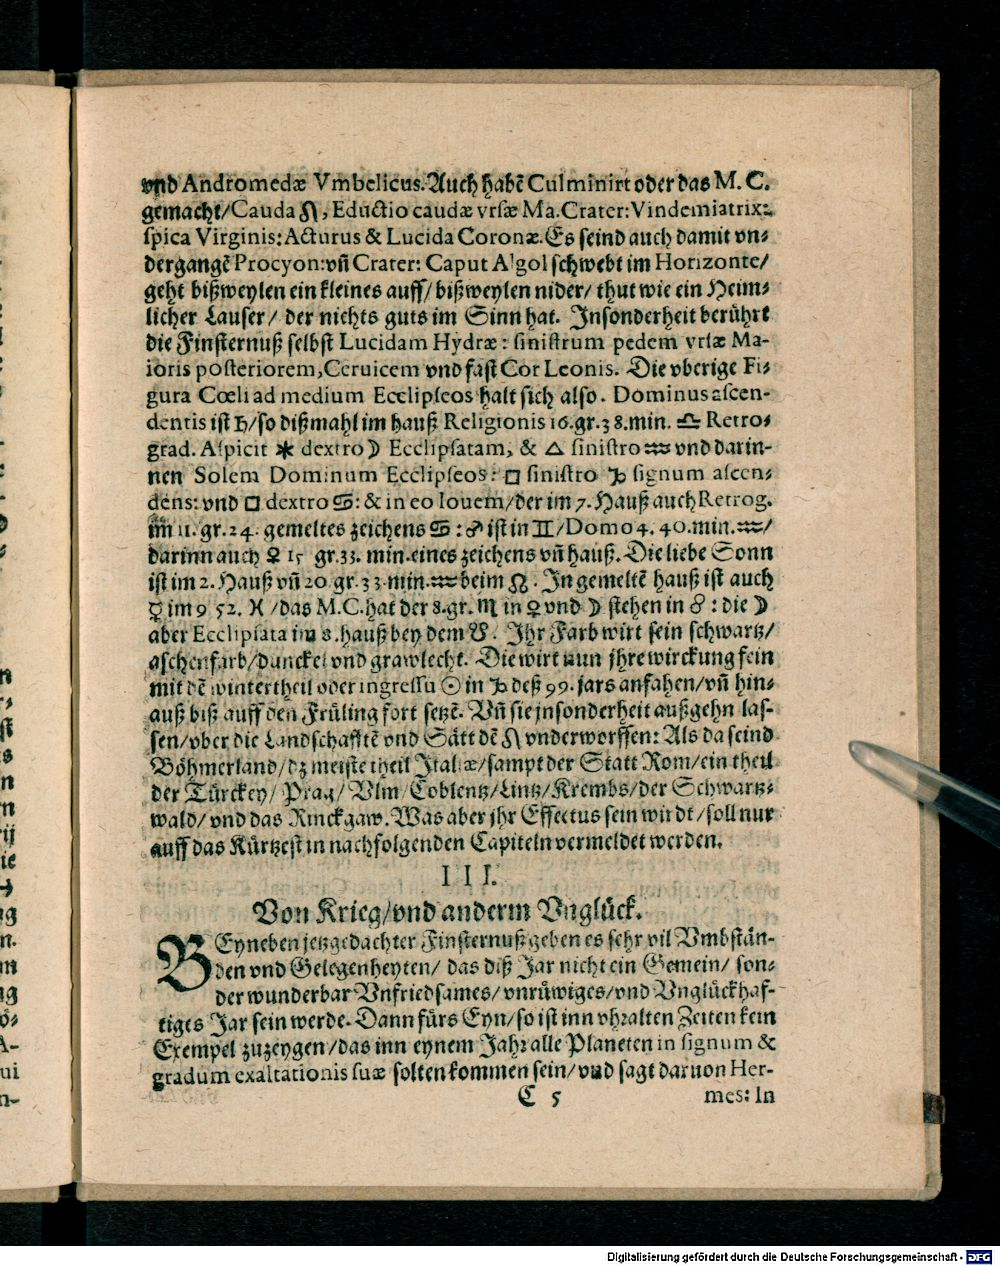 vnd Andromedæ Vmbelicus. Auch habẽ Culminirt oder das M. C.
gemacht/Cauda ♌, Eductio caudæ vrsæ Ma. Crater: Vindemiatrix:
spica Virginis: Acturus & Lucida Coronæ. Es seind auch damit vn⸗
dergangẽ Procyon: vñ Crater: Caput Algol schwebt im Horizonte/
geht bißweylen ein kleines auff/ bißweylen nider/ thut wie ein Heim⸗
licher Lauser/ der nichts guts im Sinn hat. Insonderheit berührt
die Finsternuß selbst Lucidam Hydræ: sinistrum pedem vrsæ Ma-
ioris posteriorem, Ceruicem vnd fast Cor Leonis. Die vberige Fi⸗
gura Cœli ad medium Ecclipseos halt sich also. Dominus ascen-
dentis ist ♄/so dißmahl im hauß Religionis 16. gr. 38. min. ♎ Retro⸗
grad. Aspicit ✱ dextro ☽ Ecclipsatam, & △ sinistro ♒ vnd darin-
nen Solem Dominum Ecclipseos: □ sinistro ♑ signum ascen⸗
dens: vnd □ dextro ♋: & in eo Iouem/der im 7. Hauß auch Retrog.
im 11. gr. 24. gemeltes zeichens ♋: ♂ ist in ♊/Domo 4. 40. min. ♒/
darinn auch ♀ 15 gr. 33. min. eines zeichens vñ hauß. Die liebe Sonn
ist im 2. Hauß vñ 20 gr. 33 min. ♒ beim ☊. In gemeltẽ hauß ist auch
☿ im 9 52. ♓/das M. C. hat der 8. gr. ♏ in ♀ vnd ☽ stehen in ☍: die ☽
aber Ecclipsata im 8. hauß bey dem ☋. Ihr Farb wirt sein schwartz/
aschenfarb/dunckel vnd grawlecht. Die wirt nun jhre wirckung fein
mit dẽ wintertheil oder ingressu ☉ in ♑ deß 99. jars anfahen/vñ hin⸗
auß biß auff den Früling fort setzẽ. Vñ sie jnsonderheit außgehn las-
sen/vber die Landschafftẽ vnd Sätt dẽ ♌ vnderworffen: Als da seind
Böhmerland/dz meiste theil Italiæ/sampt der Statt Rom/ein theil
der Türckey/ Prag/ Vlm/ Coblentz/Lintz/Krembs/der Schwartz⸗
wald/ vnd das Rinckgaw. Was aber jhr Effectus sein wirdt/soll nur
auff das Kürtzest in nachfolgenden Capiteln vermeldet werden.
III.
Von Krieg/vnd anderm Vnglück.
BEyneben jetzgedachter Finsternuß geben es sehr vil Vmbstän-
den vnd Gelegenheyten/ das diß Jar nicht ein Gemein/ son⸗
der wunderbar Vnfriedsames/vnrüwiges/vnd Vnglückhaf-
tiges Jar sein werde. Dann fürs Eyn/so ist inn vhralten Zeiten kein
Exempel zuzeygen/das inn eynem Jahr alle Planeten in signum &
gradum exaltationis suæ solten kommen sein/vnd sagt daruon Her-
C 5 mes: In
Digitalisierung gefördert durch die Deutsche Forschungsgemeinschaft - DFG